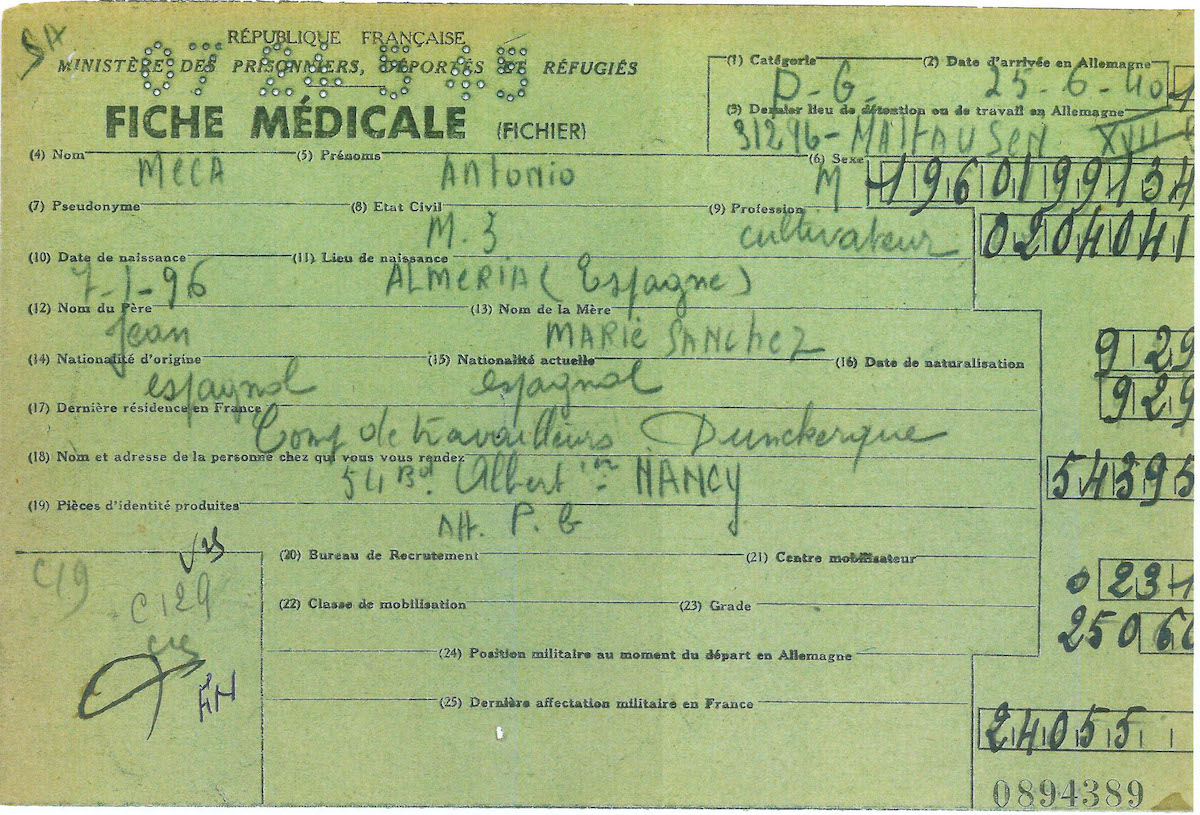 SA
RÉPUBLIQUE FRANÇAISE
MINISTÈRE DES PRISONNIERS, DÉPORTÉS ET RÉFUGIÉS
FICHE MÉDICALE (FICHIER)
(1) Catégorie (2) Date d'arrivée en Allemagne
D-G. 25-6-40
(3) Dernier lieu de détention ou de travail en Allemagne
31296-MALTAUSEN XVII
(4) Nom (5) Prénoms (6) Sexe
MECA Antonio M 1960199134
(7) Pseudonyme (8) Etat Civil (9) Profession
M. 3 cultivateur 0204041
(10) Date de naissance (11) Lieu de naissance
7-1-96 ALMERIA (Espagne)
(12) Nom du Père (13) Nom de la Mère
Jean MARIE SANCHEZ
929
(14) Nationalité d'origine (15) Nationalité actuelle (16) Date de naturalisation
espagnol espagnol 929
(17) Dernière résidence en France
Comp de travailleurs Dunckerque
(18) Nom et adresse de la personne chez qui vous vous rendez
54 Bd. Albert 1er NANCY 54395
(19) Pièces d'identité produites
Att. P. G
(20) Bureau de Recrutement (21) Centre mobilisateur
C19
C129
0231
(22) Classe de mobilisation (23) Grade
25060
(24) Position militaire au moment du départ en Allemagne
(25) Dernière affectation militaire en France
24055
0894389